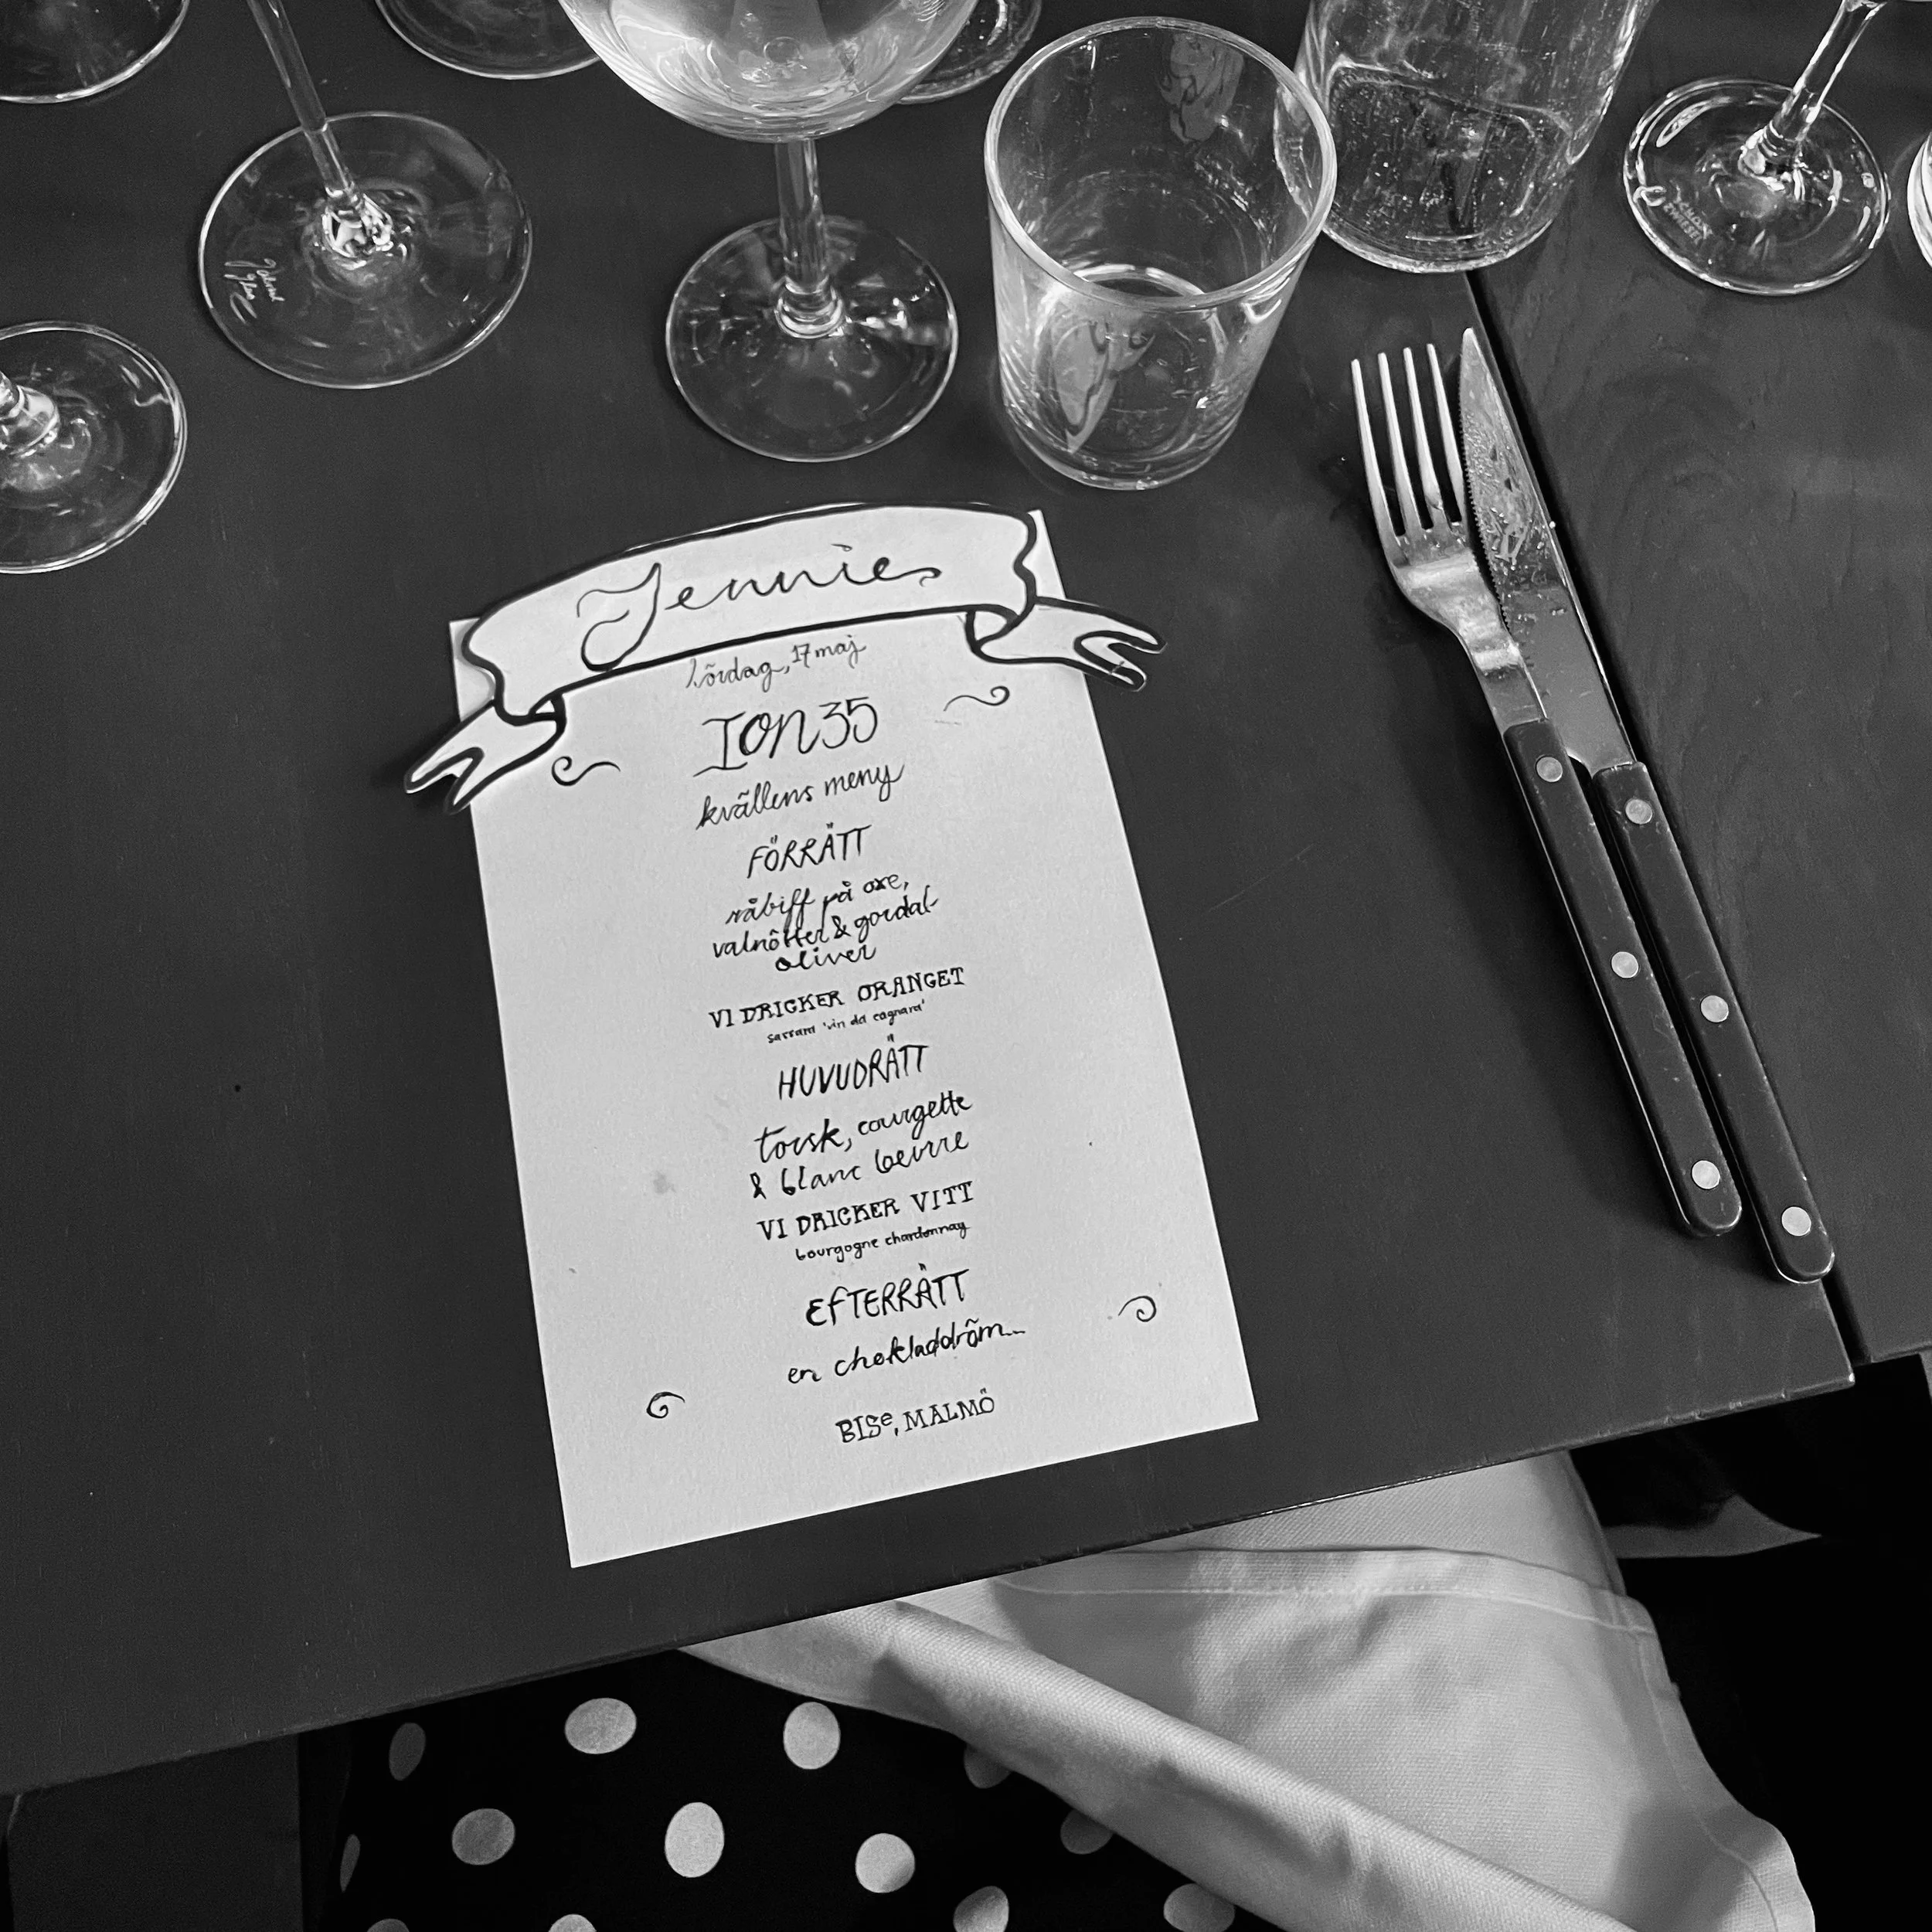 Jennie
lördag, 17 maj
ION 35
kvällens meny
FÖRRÄTT
råbiff på oxe,
valnötter & gordal-
oliver
VI DRICKER ORANGET
sassara 'vin da cagnara'
HUVUDRÄTT
torsk, courgette
& blanc beurre
VI DRICKER VITT
bourgogne chardonnay
EFTERRÄTT
en chokladdröm...
BISe, MALMÖ